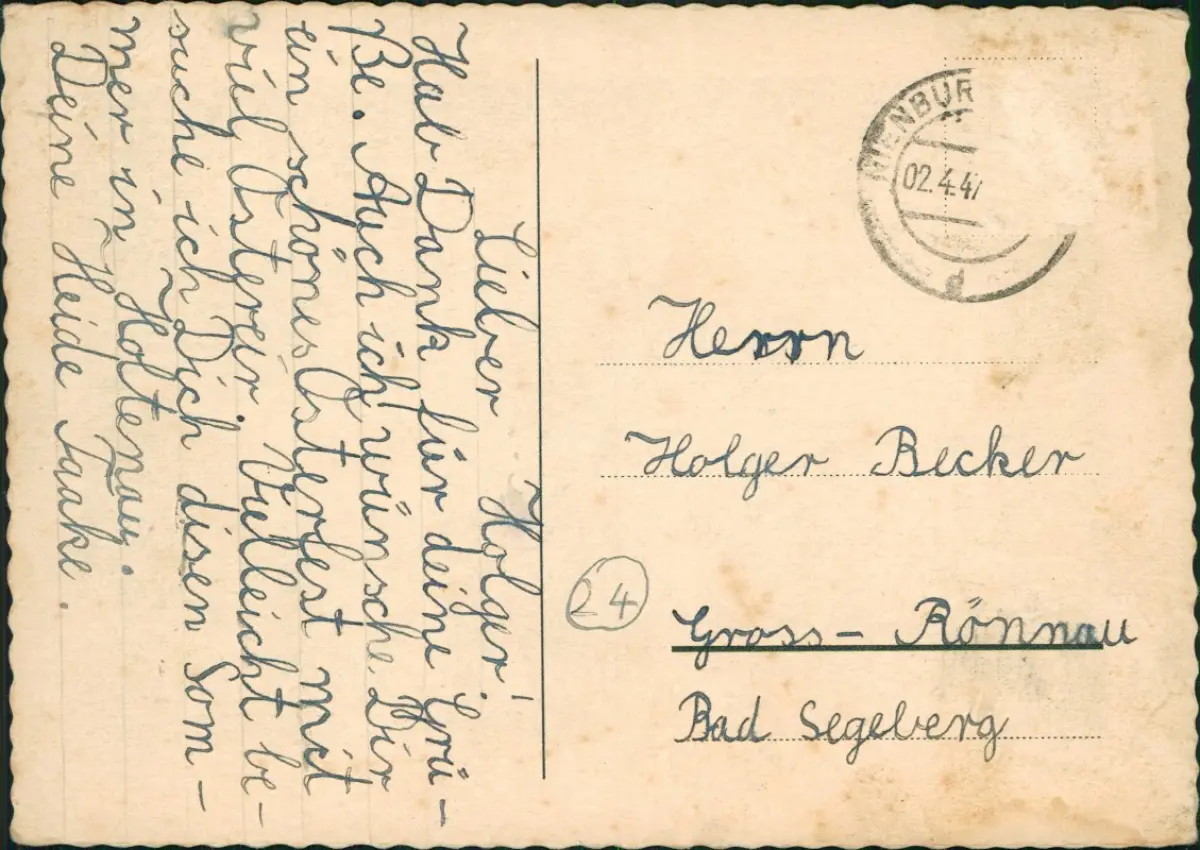 Lieber Holger!
Hab Dank für deine Grü-
ße. Auch ich wünsche Dir
ein schönes Osterfest mit
viel Ostereir. Villeicht be-
suche ich Dich disen Som-
mer in Holtenau.
Deine Heide Taake.
02.4.47
d
Herrn
Holger Becker
24
Gross- Rönnau
Bad Segeberg